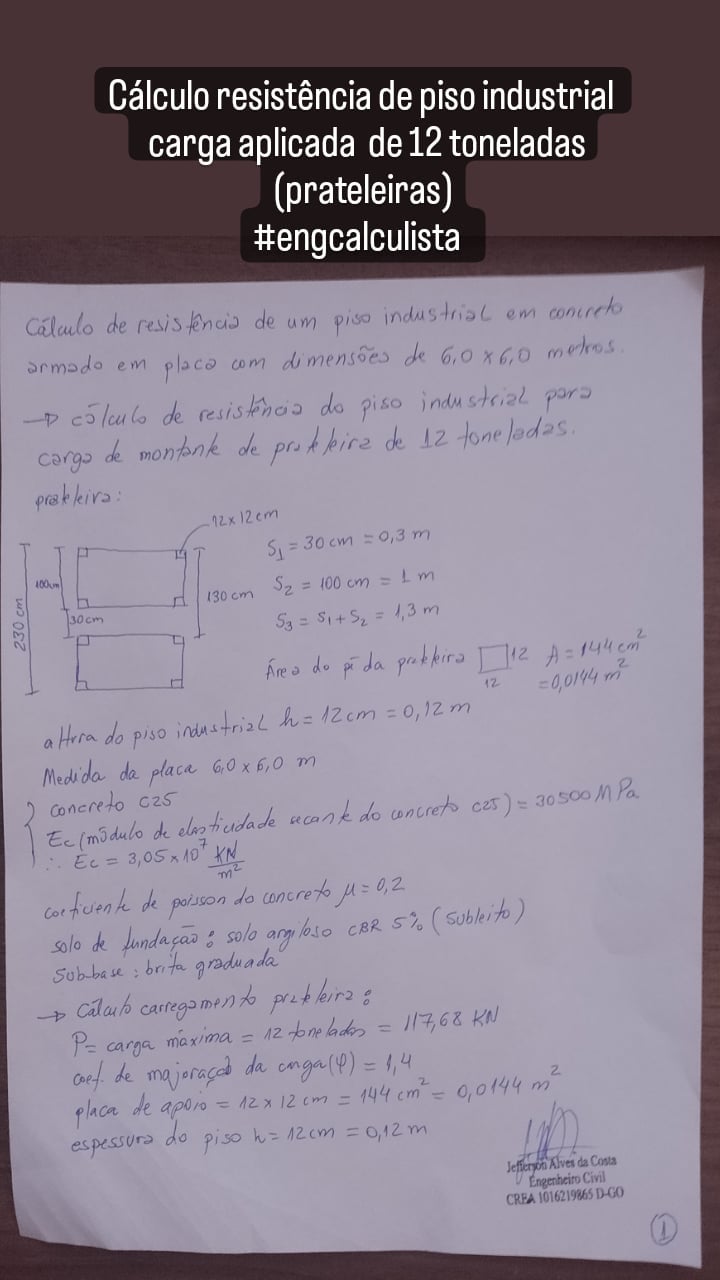 Cálculo resistência de piso industrial
carga aplicada de 12 toneladas
(prateleiras)
#engcalculista
Cálculo de resistência de um piso industrial em concreto
armado em placa com dimensões de 6,0 x 6,0 metros.
→ cálculo de resistência do piso industrial para
carga de montante de prateleira de 12 toneladas.
prateleira:
12x12cm
100cm
30cm
130 cm
230 cm
S1 = 30 cm = 0,3 m
S2 = 100 cm = 1 m
S3 = S1 + S2 = 1,3 m
Área do pé da prateleira 12 A = 144 cm²
12 = 0,0144 m²
altura do piso industrial h = 12 cm = 0,12 m
Medida da placa 6,0 x 6,0 m
concreto C25
Ec (módulo de elasticidade secante do concreto C25) = 30500 MPa
∴ Ec = 3,05 x 10⁷ KN/m²
coeficiente de poisson do concreto μ = 0,2
solo de fundação: solo argiloso CBR 5% (subleito)
Sub-base: brita graduada
→ Cálculo carregamento prateleira:
P = carga máxima = 12 toneladas = 117,68 KN
coef. de majoração da carga (φ) = 1,4
placa de apoio = 12 x 12 cm = 144 cm² = 0,0144 m²
espessura do piso h = 12 cm = 0,12 m
Jefferson Alves da Costa
Engenheiro Civil
CREA 1016219865 D-GO
1